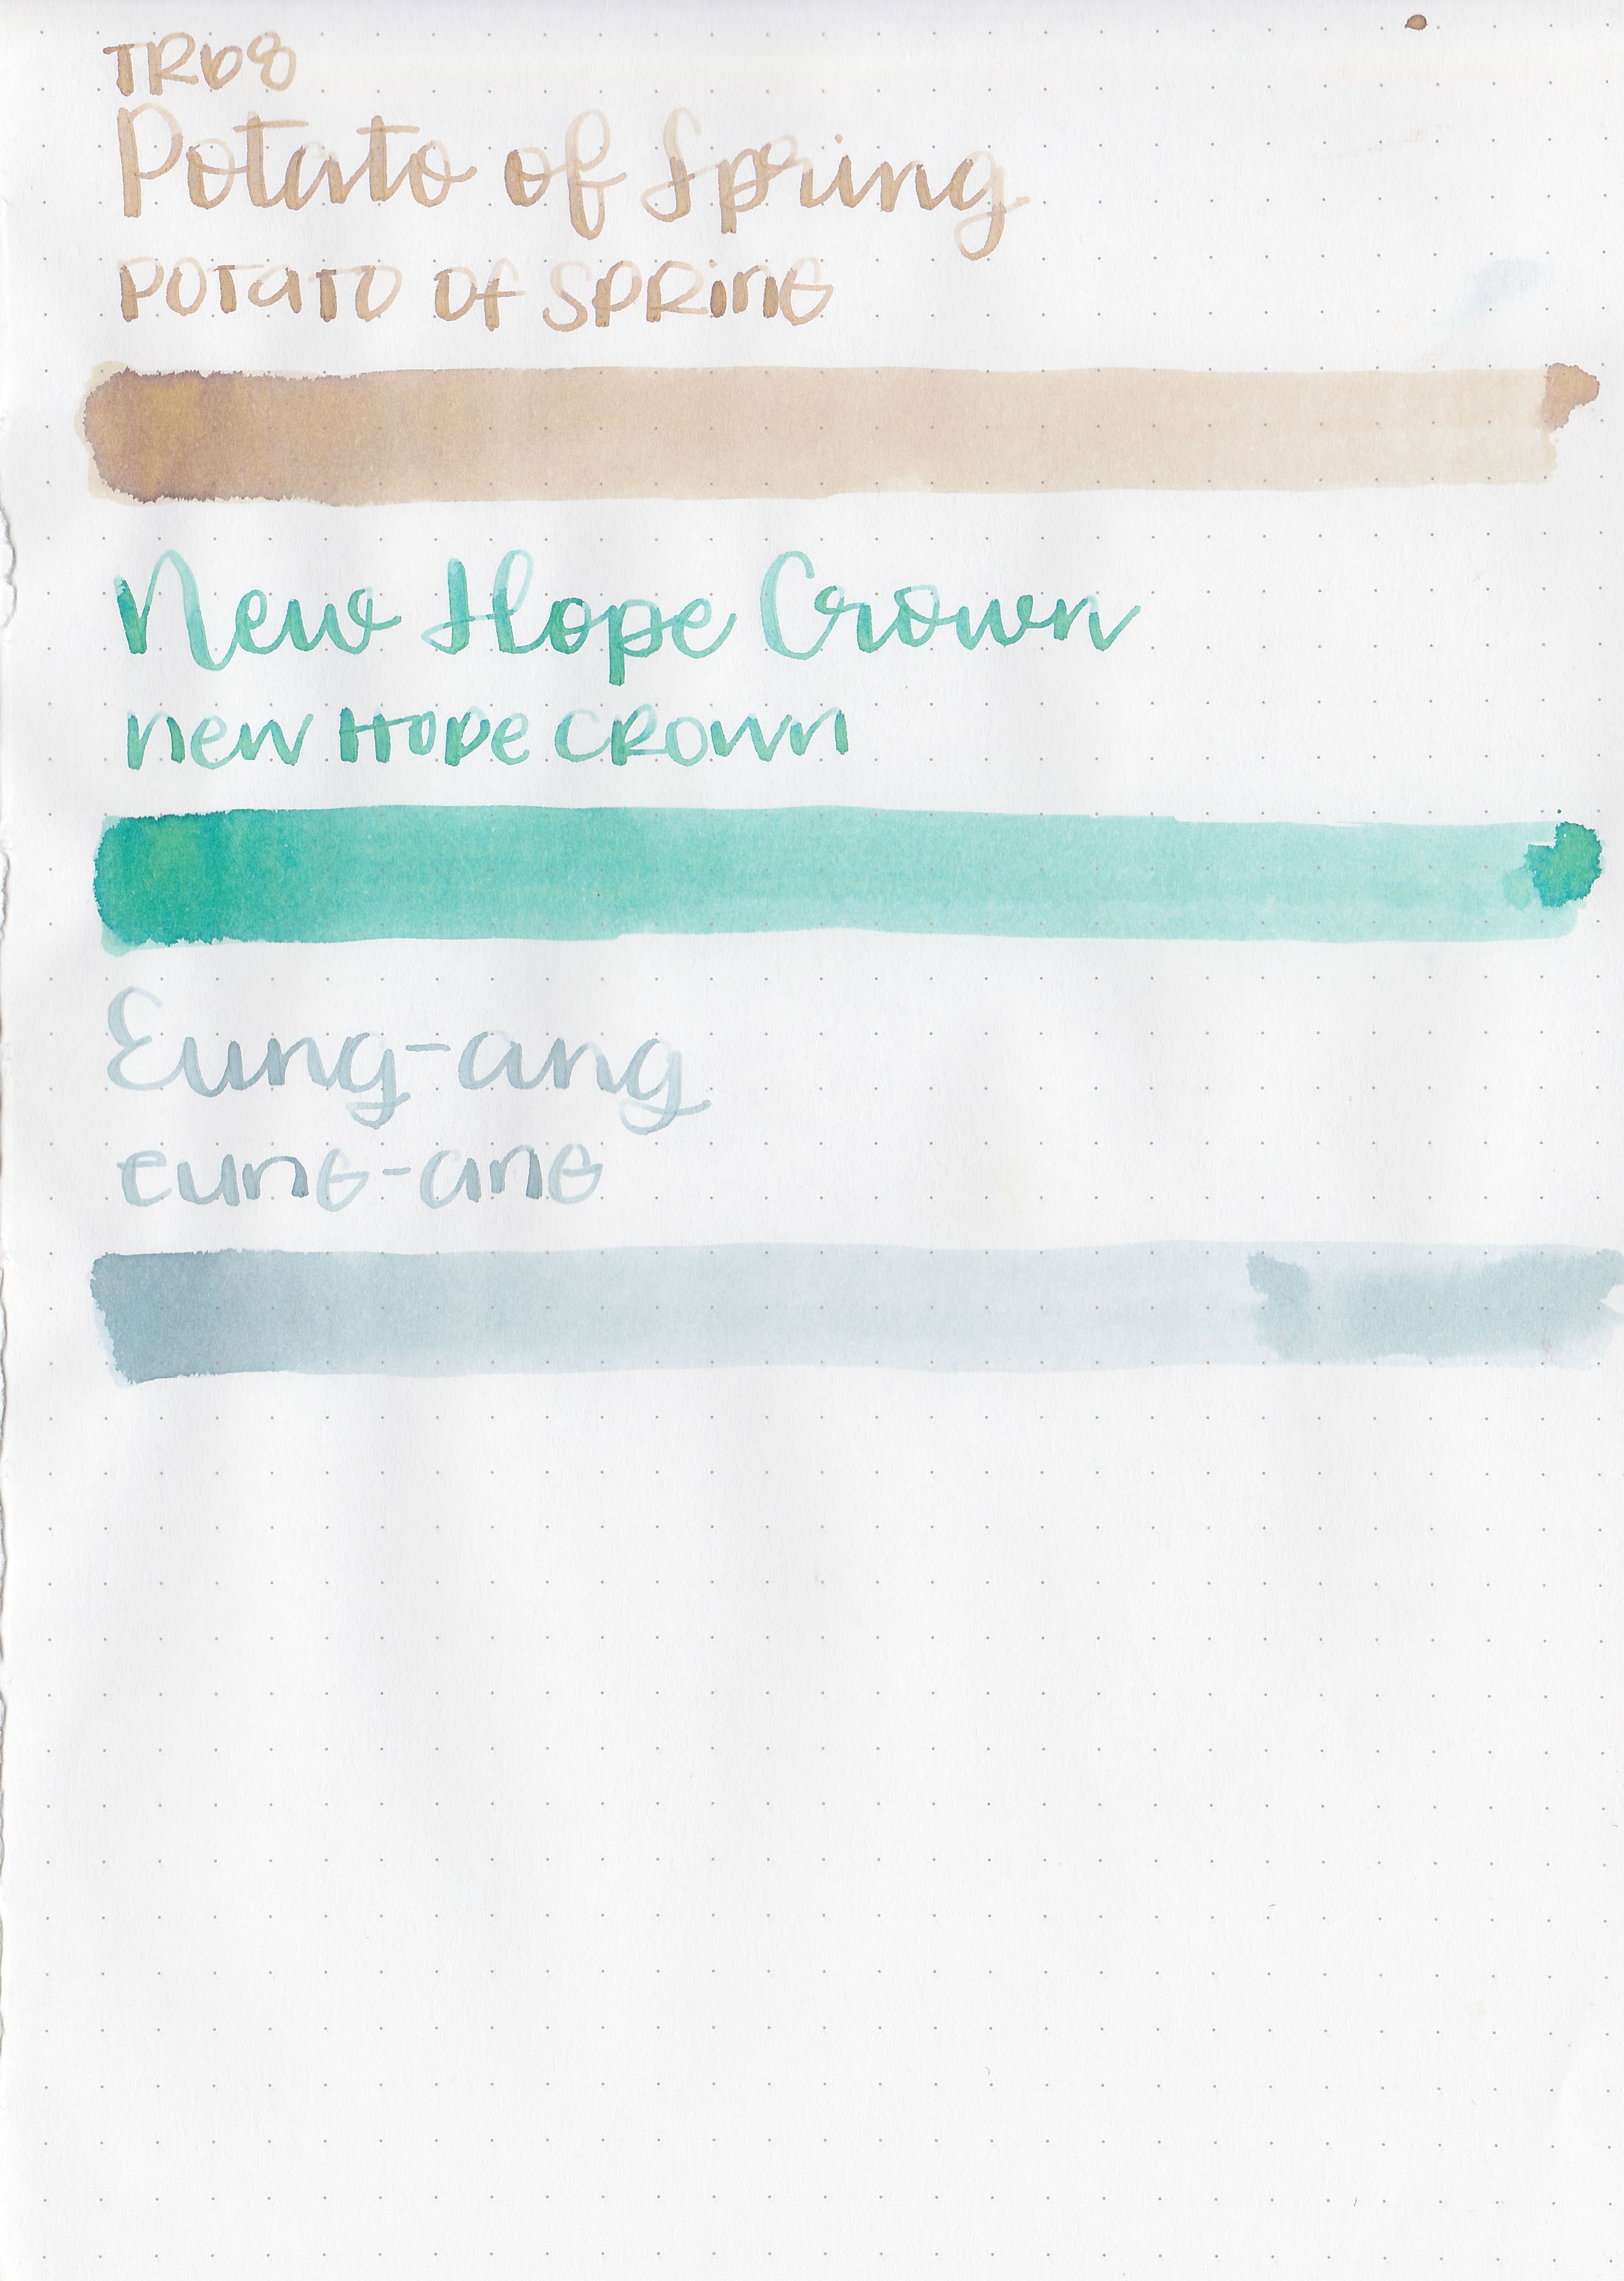 TR68
Potato of Spring
POTATO OF SPRING
New Hope Crown
new Hope CROWN
Eung-ang
eung-ang